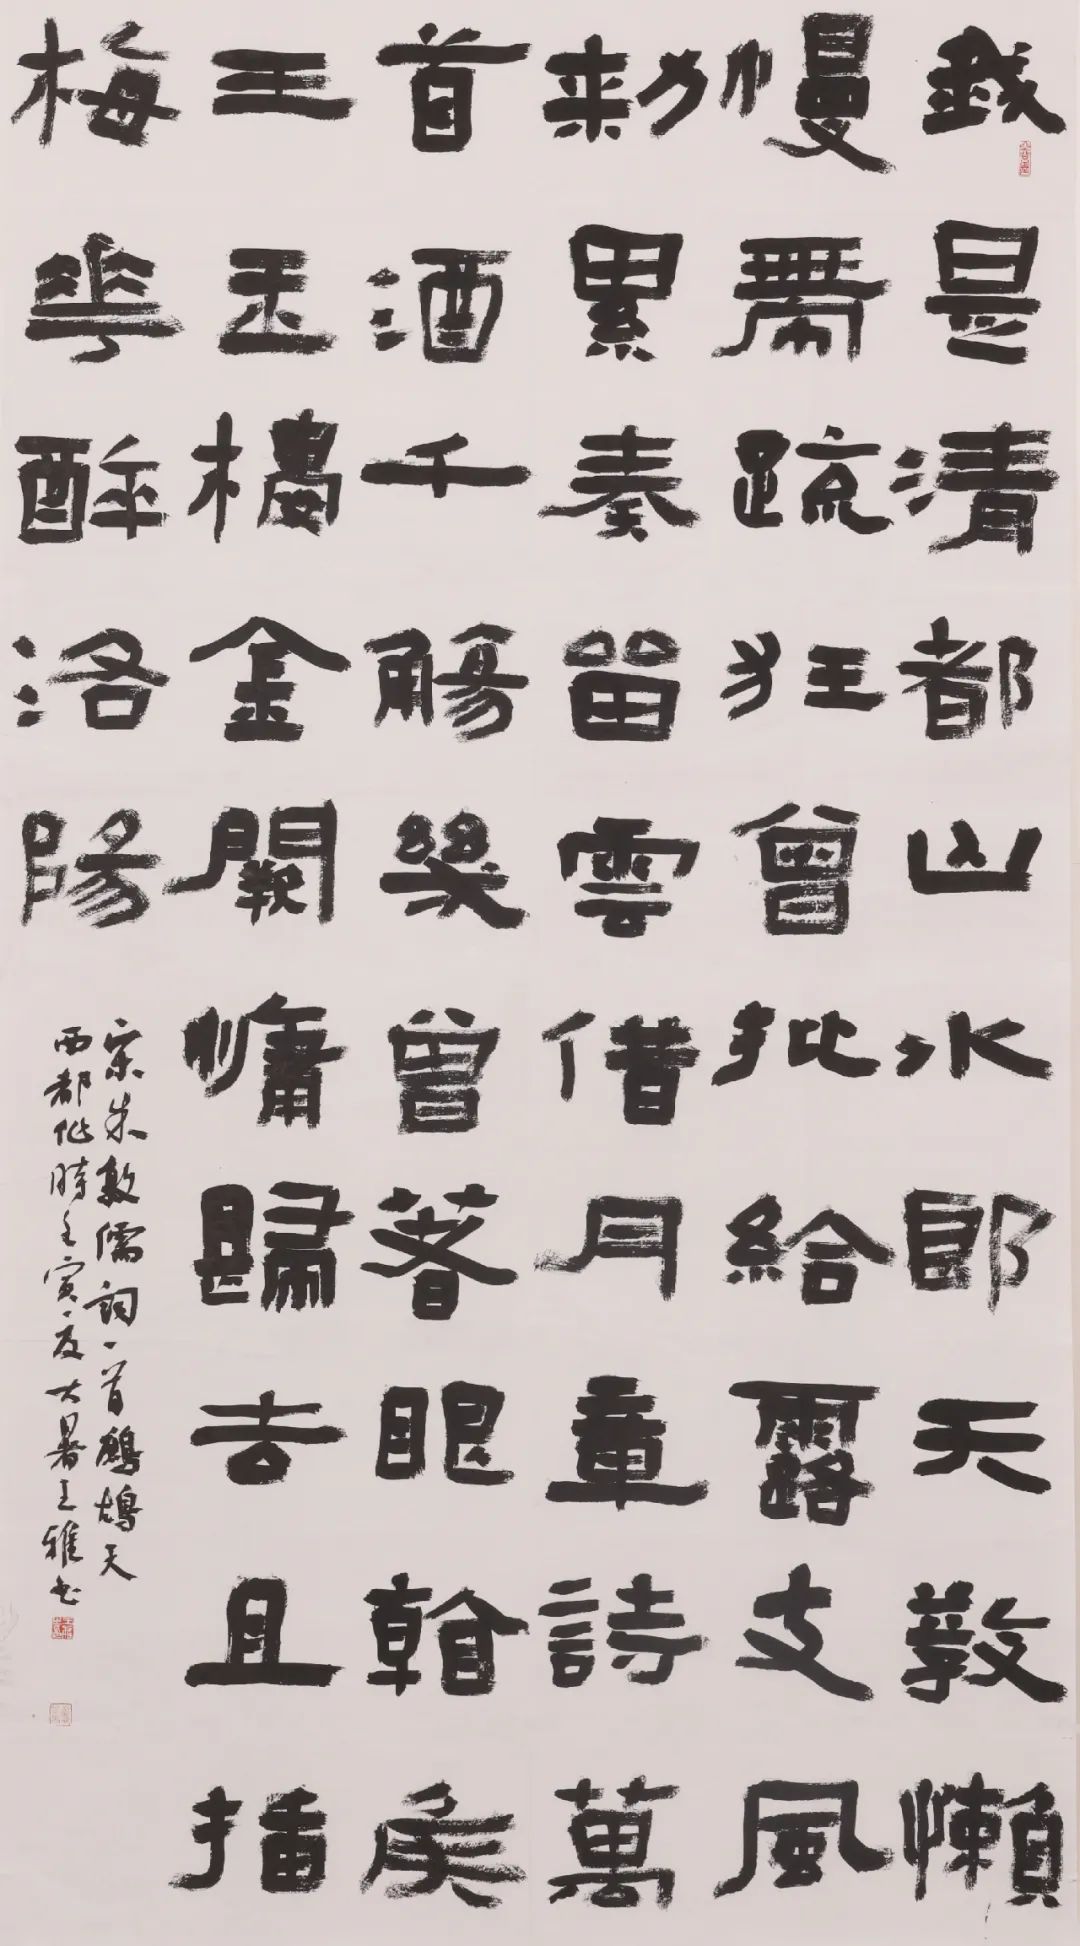 我是清都山水郎天教懶
慢帶疏狂曾批給露支風
勑累奏留雲借月章詩萬
首酒千觴幾曾著眼看侯
王玉樓金闕慵歸去且插
梅花醉洛陽
宋朱敦儒詞一首鷓鴣天
西都作時壬寅之夏大暑王雅書